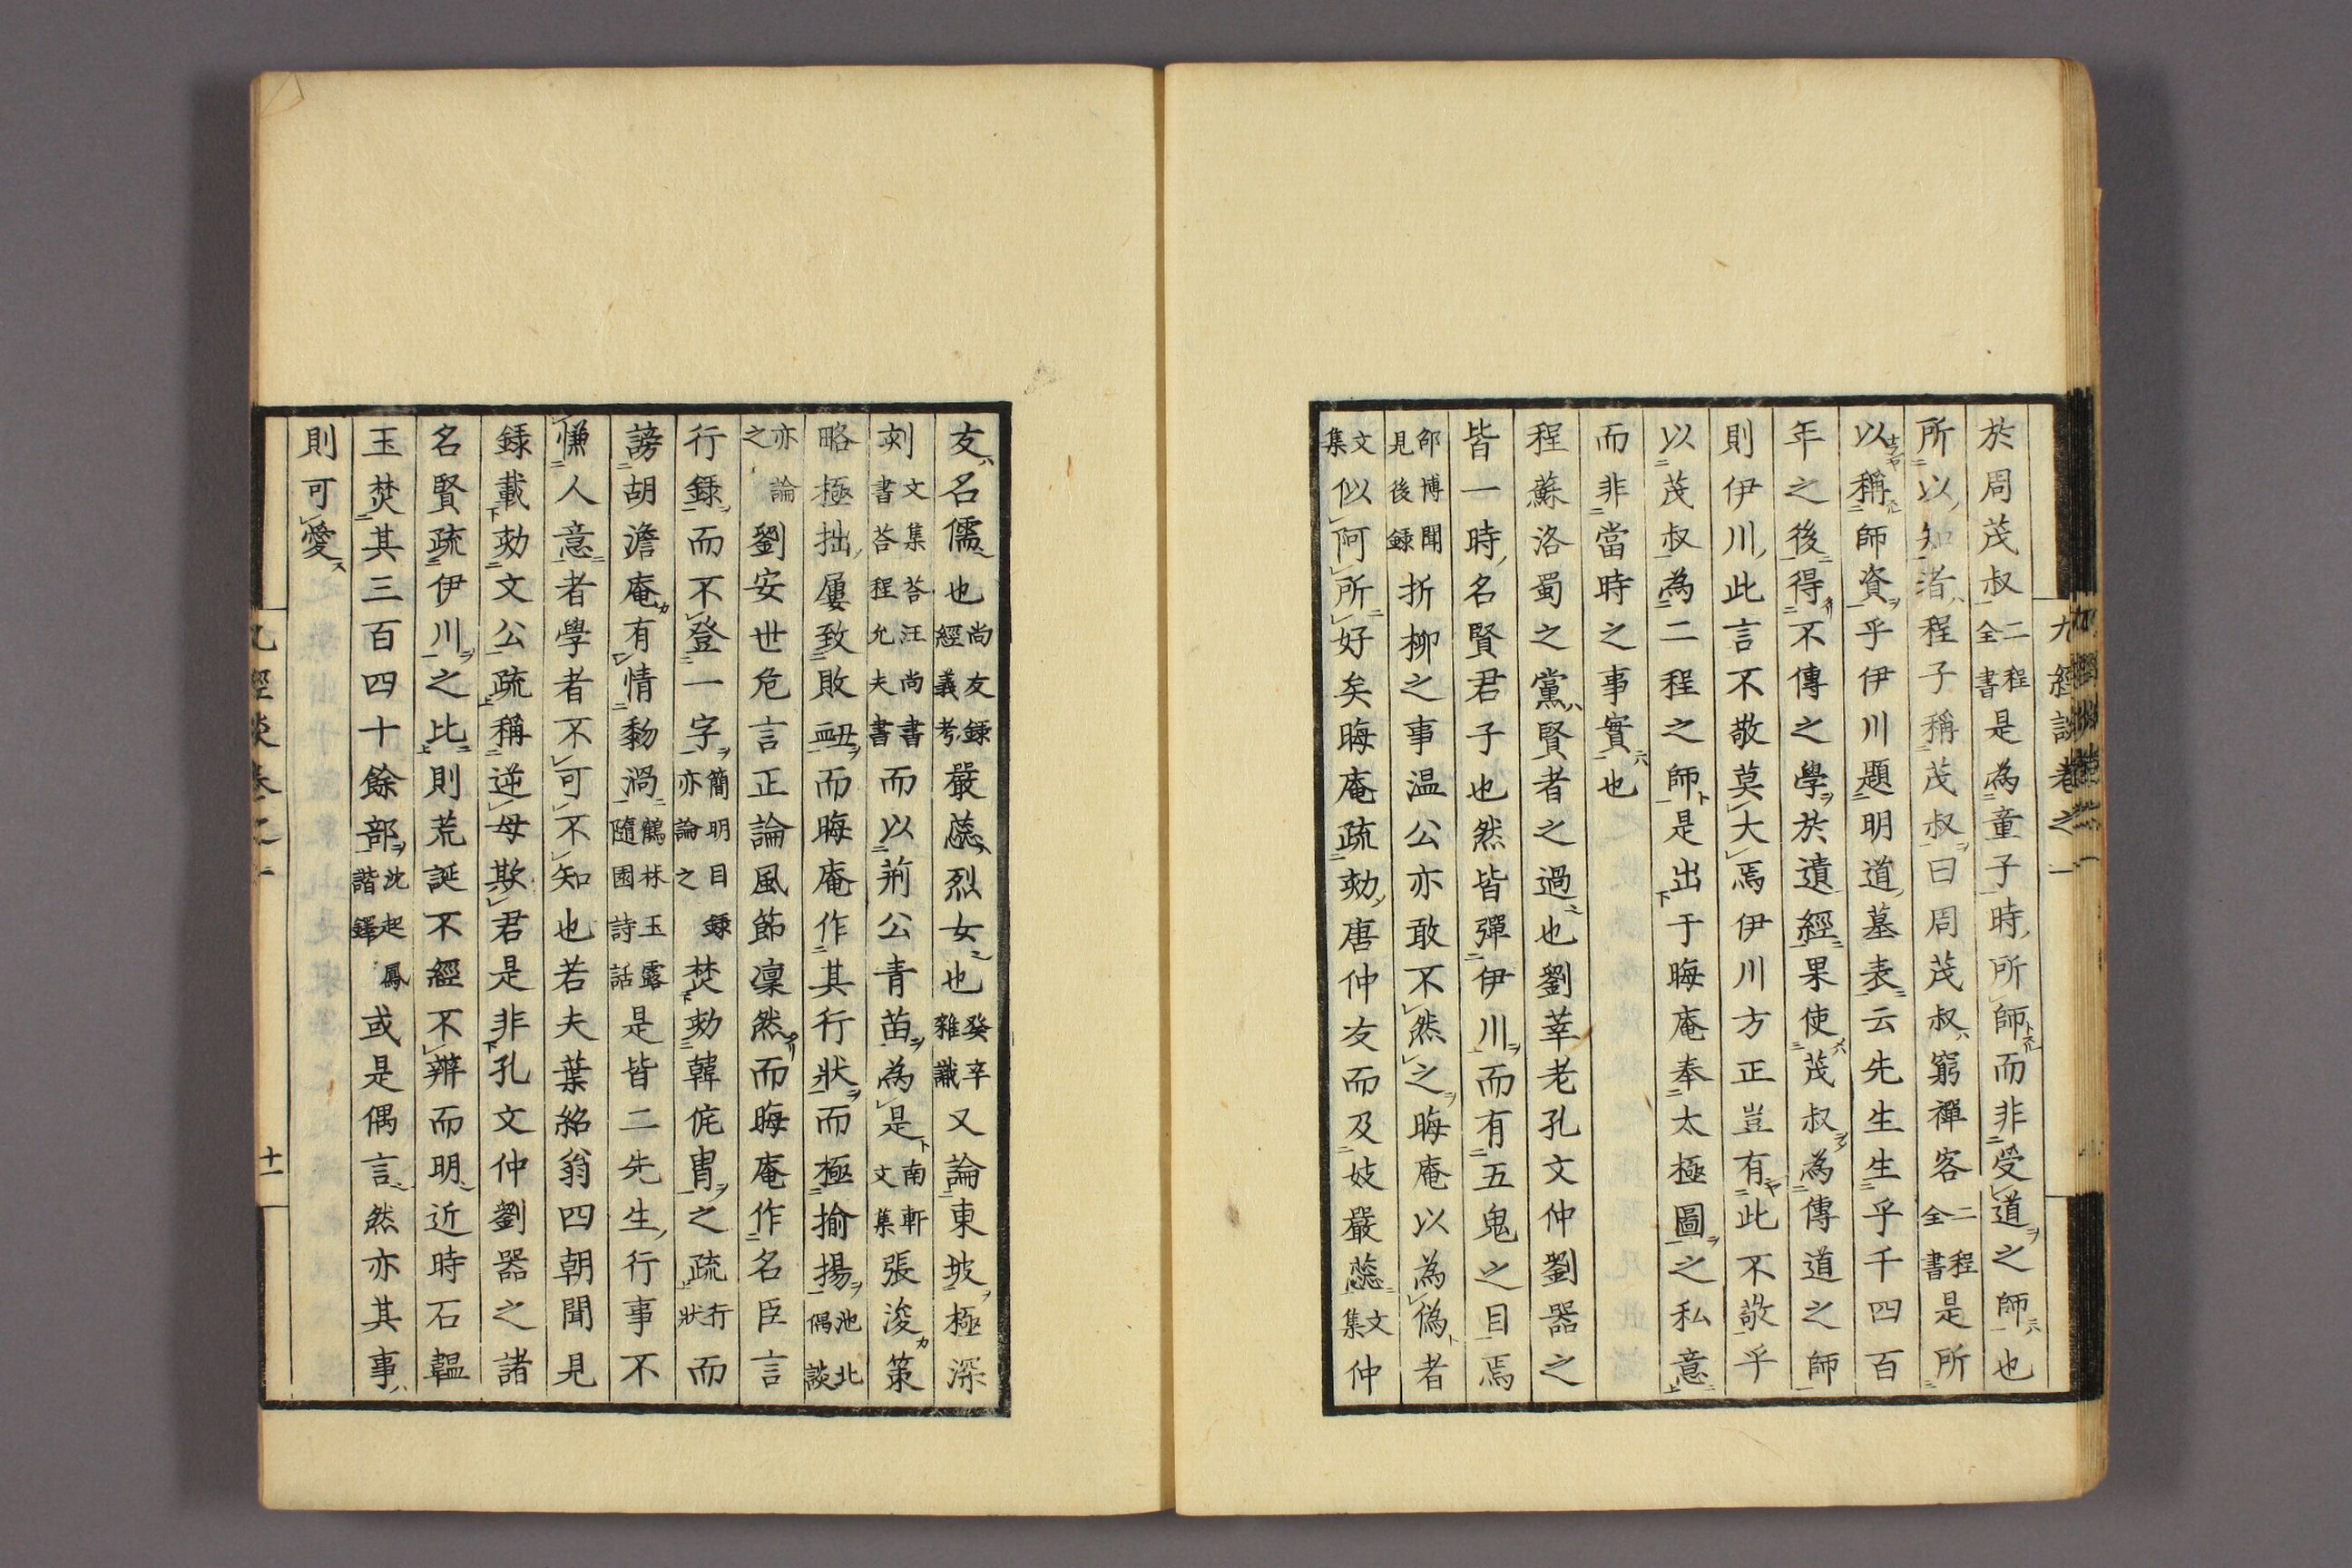 九經談卷之一
於周茂叔二程全書是為童子時所師而非受道之師也
所以知者程子稱茂叔曰周茂叔窮禪客二程全書是所
以稱師資乎伊川題明道墓表云先生生乎千四百
年之後得不傳之學於遺經果使茂叔為傳道之師
則伊川此言不敬莫大焉伊川方正豈有此不敬乎
以茂叔為二程之師是出于晦庵奉太極圖之私意
而非當時之事實也
程蘇洛蜀之黨賢者之過也劉莘老孔文仲劉器之
皆一時名賢君子也然皆彈伊川而有五鬼之目焉
邵博聞見後錄折柳之事温公亦敢不然之晦庵以為偽者
文集似阿所好矣晦庵疏劾唐仲友而及妓嚴蕊文集仲
友名儒也尚友錄經義考嚴蕊烈女也癸辛雜識又論東坡極深
刻文集荅汪尚書書荅程允夫書而以荊公青苗為是南軒文集張浚策
略極拙屢致敗衄而晦庵作其行狀而極揄揚池北偶談
亦論之劉安世危言正論風節凜然而晦庵作名臣言
行錄而不登一字簡明目錄亦論之焚劾韓侂胄之疏行狀而
謗胡澹庵有情黎渦鶴林玉露隨園詩話是皆二先生行事不
慊人意者學者不可不知也若夫葉紹翁四朝聞見
錄載劾文公疏稱逆母欺君是非孔文仲劉器之諸
名賢疏伊川之比則荒誕不經不辨而明近時石韞
玉焚其三百四十餘部沈起鳳諧鐸或是偶言然亦其事
則可愛
九經談卷之一
十一